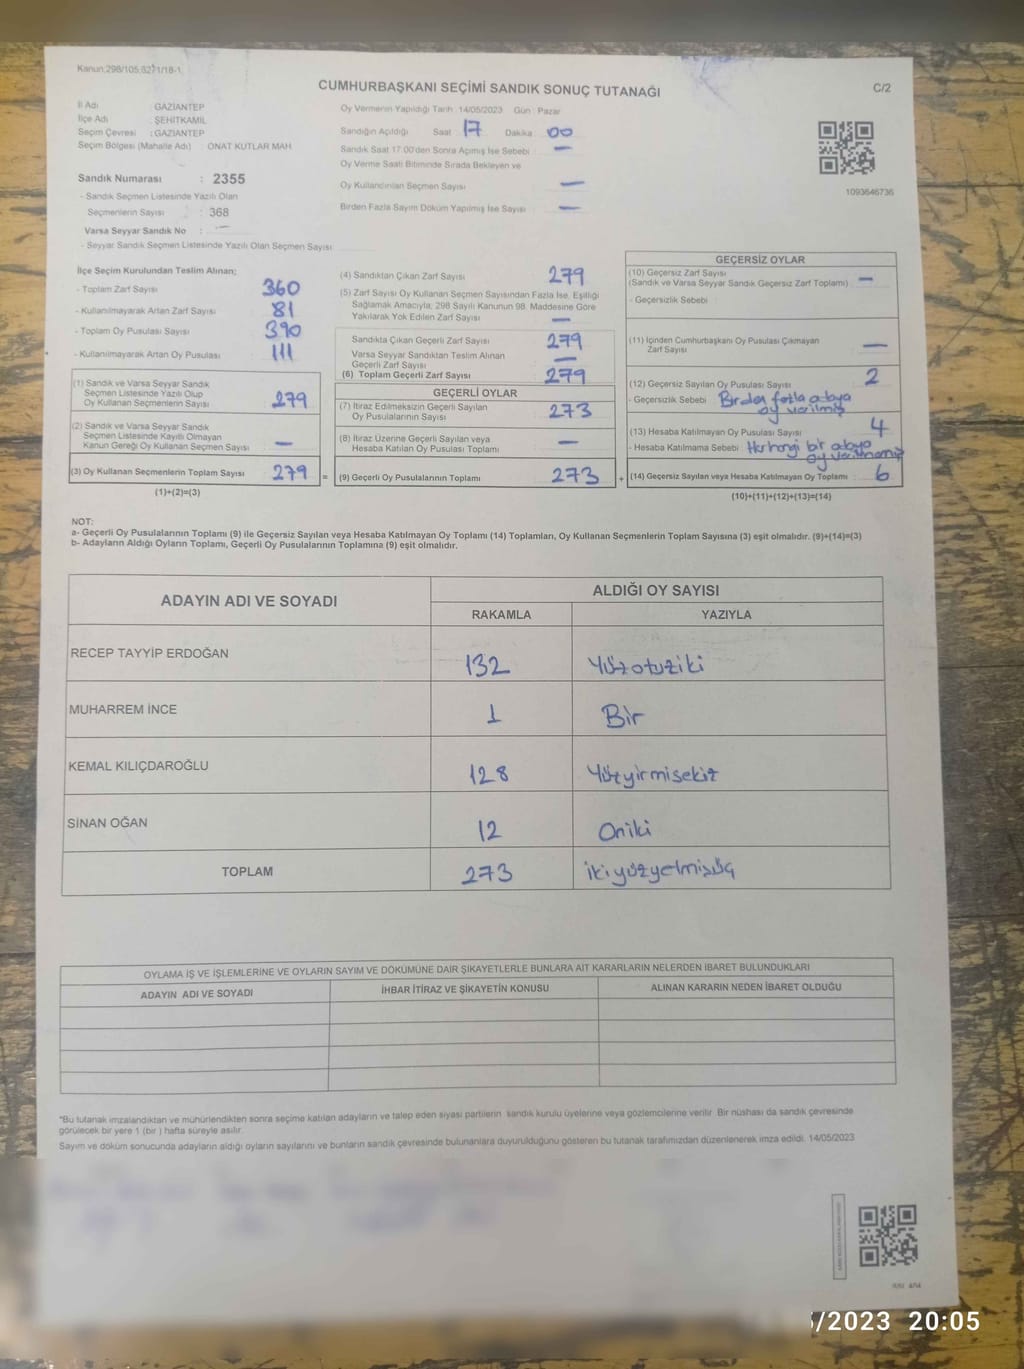 Kanun:298/105,6271/18-1
CUMHURBAŞKANI SEÇİMİ SANDIK SONUÇ TUTANAĞI
C/2
İl Adı GAZİANTEP
İlçe Adı : ŞEHİTKAMİL
Seçim Çevresi : GAZİANTEP
Seçim Bölgesi (Mahalle Adı) ONAT KUTLAR MAH.
Oy Vermenin Yapıldığı Tarih 14/05/2023 Gün : Pazar
Sandığın Açıldığı Saat 17 Dakika 00
Sandık Saat 17.00'den Sonra Açımış İse Sebebi —
Oy Verme Saati Bitiminde Sırada Bekleyen ve
Oy Kullandırılan Seçmen Sayısı —
Birden Fazla Sayım Döküm Yapılmış İse Sayısı —
1093646736
Sandık Numarası : 2355
- Sandık Seçmen Listesinde Yazılı Olan
Seçmenlerin Sayısı : 368
Varsa Seyyar Sandık No : —
- Seyyar Sandık Seçmen Listesinde Yazılı Olan Seçmen Sayısı
İlçe Seçim Kurulundan Teslim Alınan;
- Toplam Zarf Sayısı 360
- Kullanılmayarak Artan Zarf Sayısı 81
- Toplam Oy Pusulası Sayısı 390
- Kullanılmayarak Artan Oy Pusulası 111
(1) Sandık ve Varsa Seyyar Sandık
Seçmen Listesinde Yazılı Olup
Oy Kullanan Seçmenlerin Sayısı 279
(2) Sandık ve Varsa Seyyar Sandık
Seçmen Listesinde Kayıtlı Olmayan
Kanun Gereği Oy Kullanan Seçmen Sayısı —
(3) Oy Kullanan Seçmenlerin Toplam Sayısı 279 =
(1)+(2)=(3)
(4) Sandıktan Çıkan Zarf Sayısı 279
(5) Zarf Sayısı Oy Kullanan Seçmen Sayısından Fazla İse, Eşitliği
Sağlamak Amacıyla; 298 Sayılı Kanunun 98. Maddesine Göre
Yakılarak Yok Edilen Zarf Sayısı —
Sandıkta Çıkan Geçerli Zarf Sayısı 279
Varsa Seyyar Sandıktan Teslim Alınan
Geçerli Zarf Sayısı —
(6) Toplam Geçerli Zarf Sayısı 279
GEÇERLİ OYLAR
(7) İtiraz Edilmeksizin Geçerli Sayılan
Oy Pusulalarının Sayısı 273
(8) İtiraz Üzerine Geçerli Sayılan veya
Hesaba Katılan Oy Pusulası Toplamı —
(9) Geçerli Oy Pusulalarının Toplamı 273 +
GEÇERSİZ OYLAR
(10) Geçersiz Zarf Sayısı
(Sandık ve Varsa Seyyar Sandık Geçersiz Zarf Toplamı) —
- Geçersizlik Sebebi
(11) İçinden Cumhurbaşkanı Oy Pusulası Çıkmayan
Zarf Sayısı —
(12) Geçersiz Sayılan Oy Pusulası Sayısı 2
- Geçersizlik Sebebi Birden fazla adaya
oy verilmiş
(13) Hesaba Katılmayan Oy Pusulası Sayısı 4
- Hesaba Katılmama Sebebi Herhangi bir adaya
oy verilmemiş
(14) Geçersiz Sayılan veya Hesaba Katılmayan Oy Toplamı 6
(10)+(11)+(12)+(13)=(14)
NOT:
a- Geçerli Oy Pusulalarının Toplamı (9) ile Geçersiz Sayılan veya Hesaba Katılmayan Oy Toplamı (14) Toplamları, Oy Kullanan Seçmenlerin Toplam Sayısına (3) eşit olmalıdır. (9)+(14)=(3)
b- Adayların Aldığı Oyların Toplamı, Geçerli Oy Pusulalarının Toplamına (9) eşit olmalıdır.
ADAYIN ADI VE SOYADI ALDIĞI OY SAYISI
RAKAMLA YAZIYLA
RECEP TAYYİP ERDOĞAN 132 Yüzotuziki
MUHARREM İNCE 1 Bir
KEMAL KILIÇDAROĞLU 128 Yüzyirmisekiz
SİNAN OĞAN 12 Oniki
TOPLAM 273 ikiyüzyetmişüç
OYLAMA İŞ VE İŞLEMLERİNE VE OYLARIN SAYIM VE DÖKÜMÜNE DAİR ŞİKAYETLERLE BUNLARA AİT KARARLARIN NELERDEN İBARET BULUNDUKLARI
ADAYIN ADI VE SOYADI İHBAR İTİRAZ VE ŞİKAYETİN KONUSU ALINAN KARARIN NEDEN İBARET OLDUĞU
*Bu tutanak imzalandıktan ve mühürlendikten sonra seçime katılan adayların ve talep eden siyasi partilerin sandık kurulu üyelerine veya gözlemcilerine verilir. Bir nüshası da sandık çevresinde
görülecek bir yere 1 (bir ) hafta süreyle asılır.
Sayım ve döküm sonucunda adayların aldığı oyların sayılarını ve bunların sandık çevresinde bulunanlara duyurulduğunu gösteren bu tutanak tarafımızdan düzenlenerek imza edildi. 14/05/2023
/2023 20:05